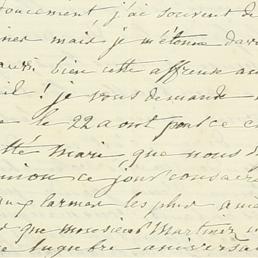 doucement j'ai souvent de
mais je m'étonne d'av
bien cette affreuse a
! je vous demande
le 22 août pour ce c
Marie, que nous d
nion ce jour consacr
aux larmes les plus am
que monsieur Martinet
lugubre anniversa